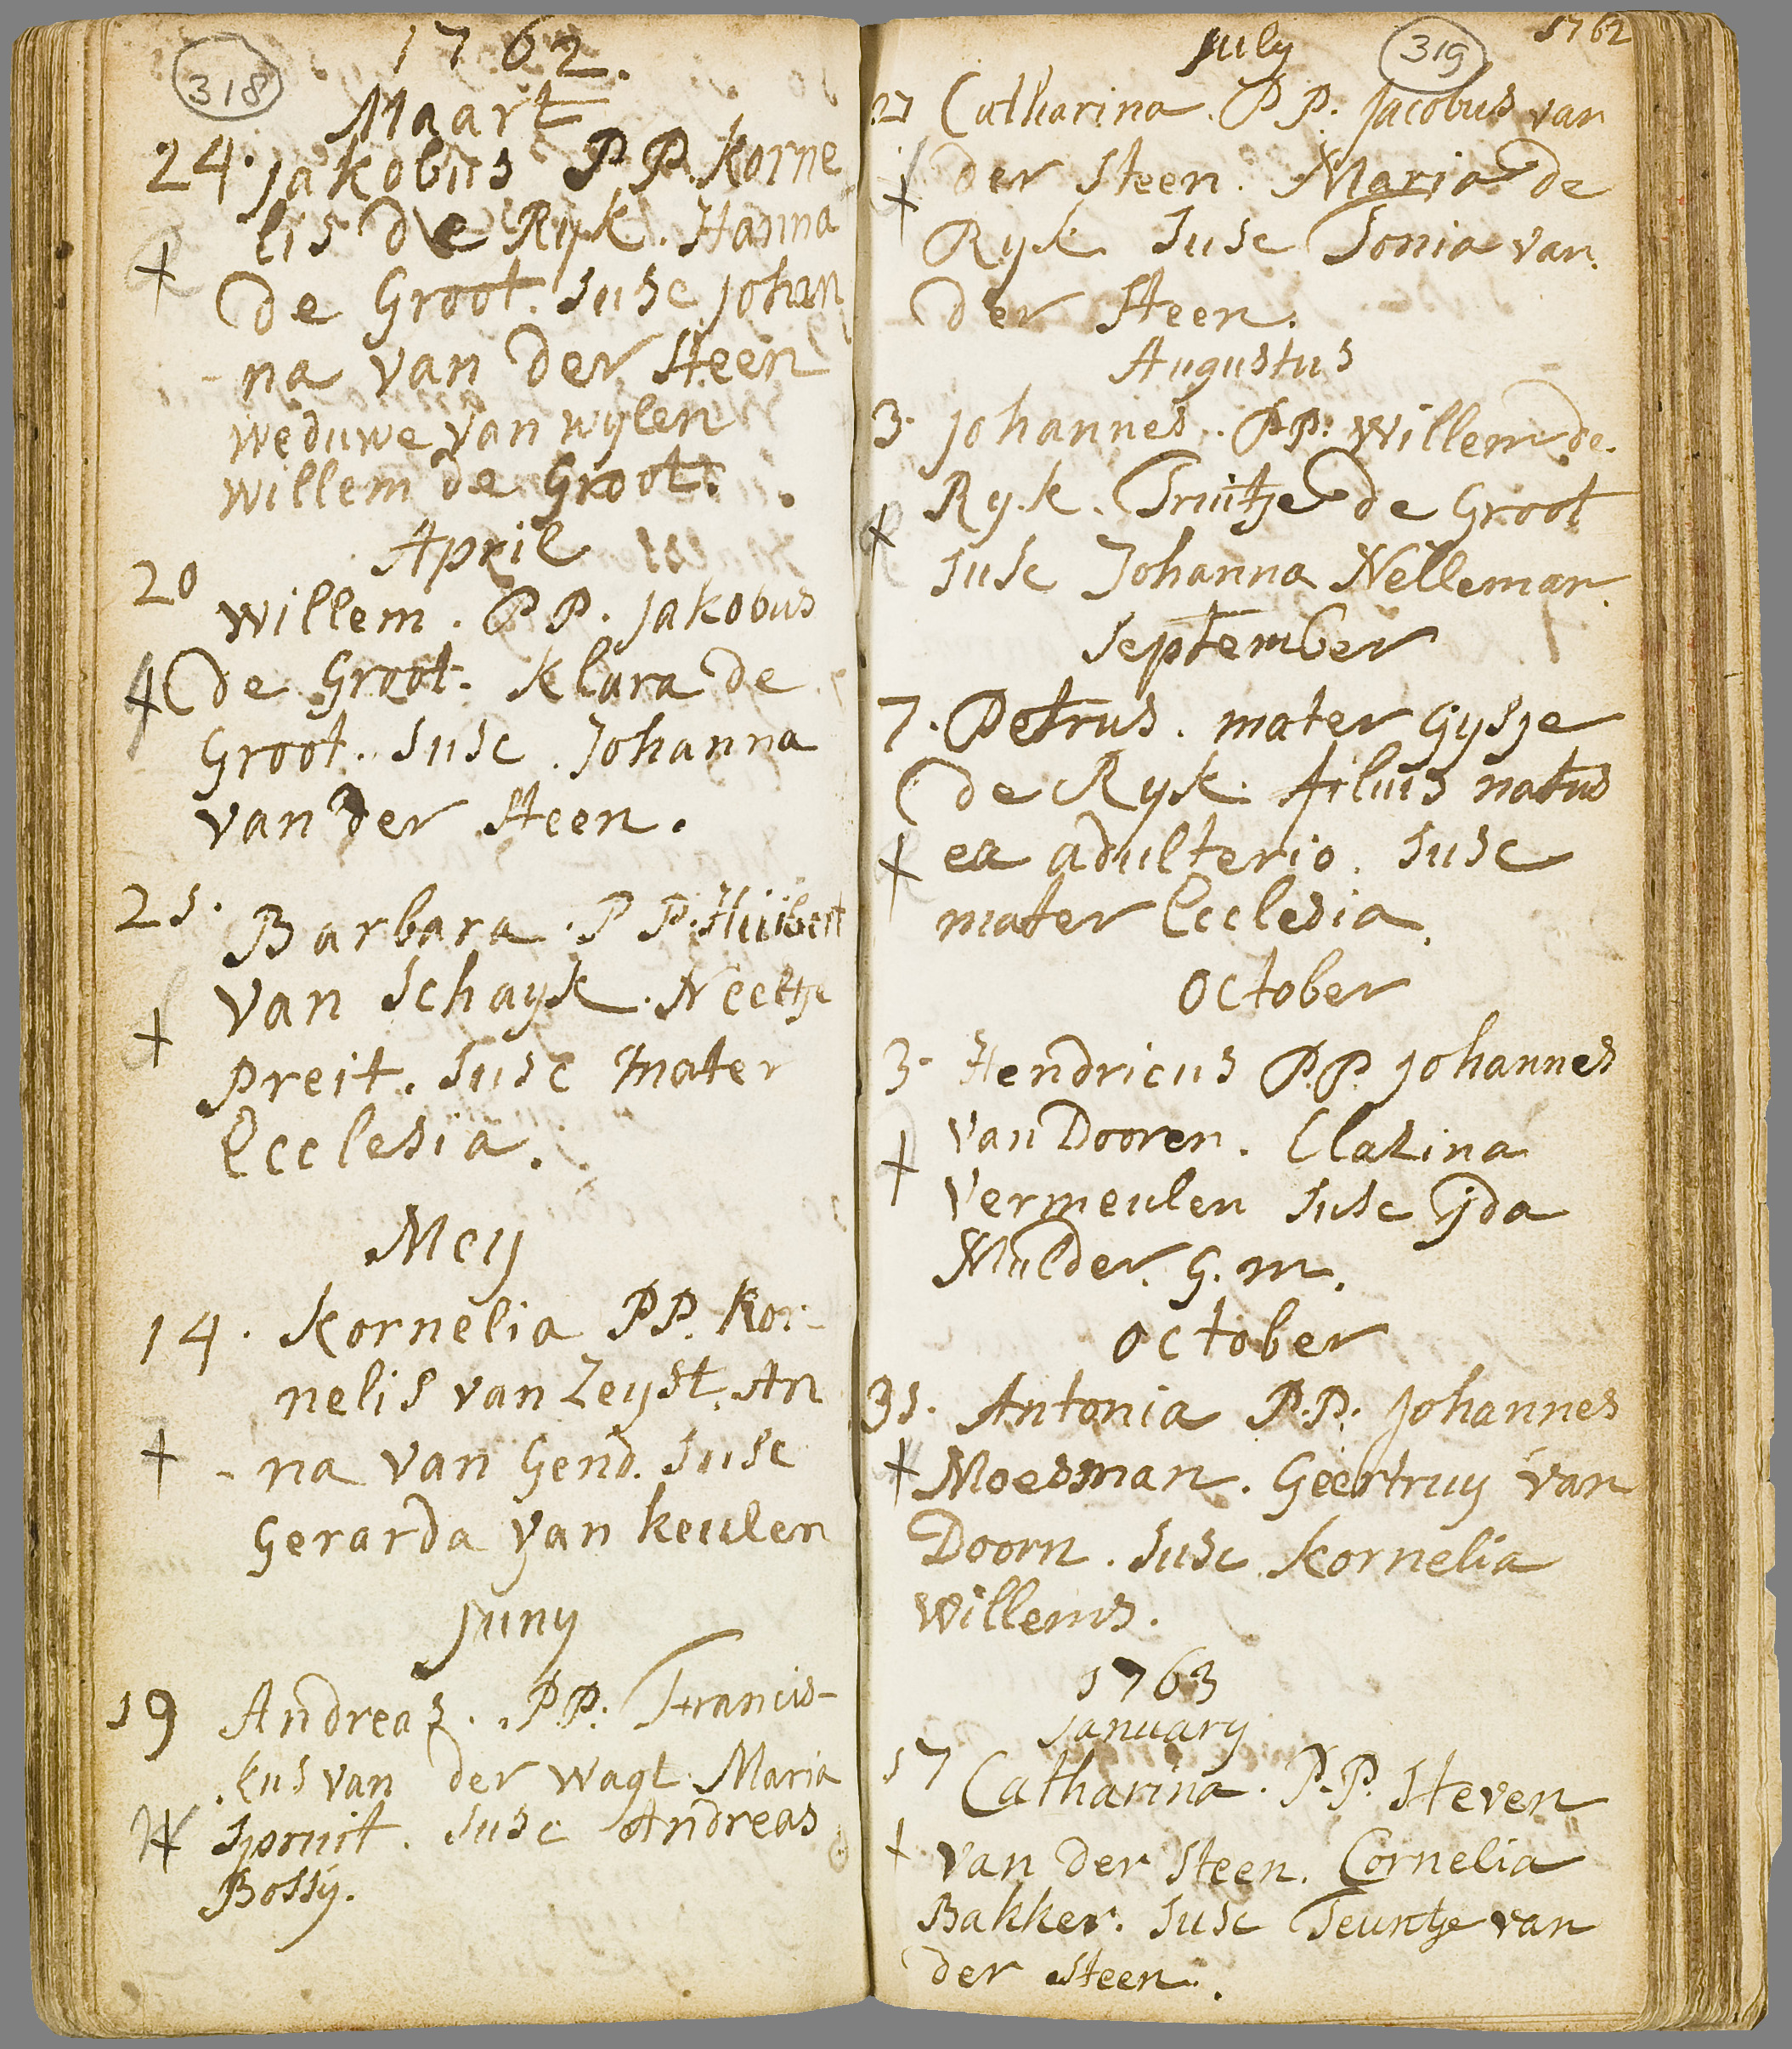 318
1762.
Maart
24. jakobus PP. Korne
lis de Ryk. Hanna
de Groot. Susc johan
na van der Steen
weduwe van wylen
willem de Groot.
April
20
willem. PP. jakobus
de Groot. Klara de
Groot. Susc. Johanna
van der Steen.
25.
Barbara. PP. Huibert
van Schayk. Neeltje
preit. Susc mater
Ecclesia.
Mey
14. Kornelia PP. Kor-
nelis van Zeyst. An
na van Gend. Susc
Gerarda van Keulen
Juny
19 Andreas. PP. Francis-
kus van der wagt. Maria
Spruit. Susc Andreas
Bossy.
July 319 1762
27 Catharina. PP. jacobus van
der Steen. Maria de
Ryk Susc Tonia van
der Steen.
Augustus
3. johannes. PP. willem de
Ryk. Truitje de Groot
Susc Johanna Nelleman.
September
7. Petrus. mater Gysje
de Ryk. filius natus
ex adulterio. Susc
mater Ecclesia.
October
3. Hendricus P.P. johannes
van Dooren. Clasina
Vermeulen Susc ijda
Mulder. G. m.
October
31. Antonia P.P. johannes
Moesman. Geertruy van
Doorn. Susc Kornelia
willems.
1763
January
17 Catharina. P.P. Steven
van der Steen. Cornelia
Bakker. Susc Teuntje van
der Steen.